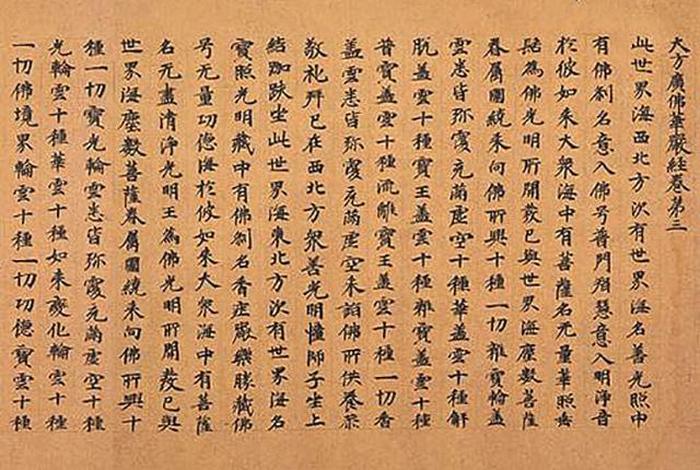 大方廣佛華嚴經卷第三
此世界海西北方次有世界海名善光照中
有佛剎名意入佛号普門慧意入明淨音
於彼如来大衆海中有菩薩名无量華照垂
髻為佛光明所開發已與世界海塵數菩薩
眷屬圍繞来向佛所興十種一切雜寶輪盖
雲悉皆弥覆充滿虛空十種華盖雲十種解
脫盖雲十種寶王盖雲十種雜寶盖雲十種
普寶盖雲十種流離寶王盖雲十種一切香
盖雲悉皆弥覆充滿虛空来詣佛所供養恭
敬礼拜已在西北方衆善光明憧師子坐上
結跏趺坐此世界海東北方次有世界海名
寶照光明藏中有佛剎名香庄嚴樂勝藏佛
号无量功德海於彼如来大衆海中有菩薩
名无盡清淨光明王為佛光明所開發已與
世界海塵數菩薩眷屬圍繞来向佛所興十
種一切寶光輪雲悉皆弥覆充滿虛空十種
光輪雲十種華雲十種如来變化輪雲十種
一切佛境界輪雲十種一切功德寶雲十種